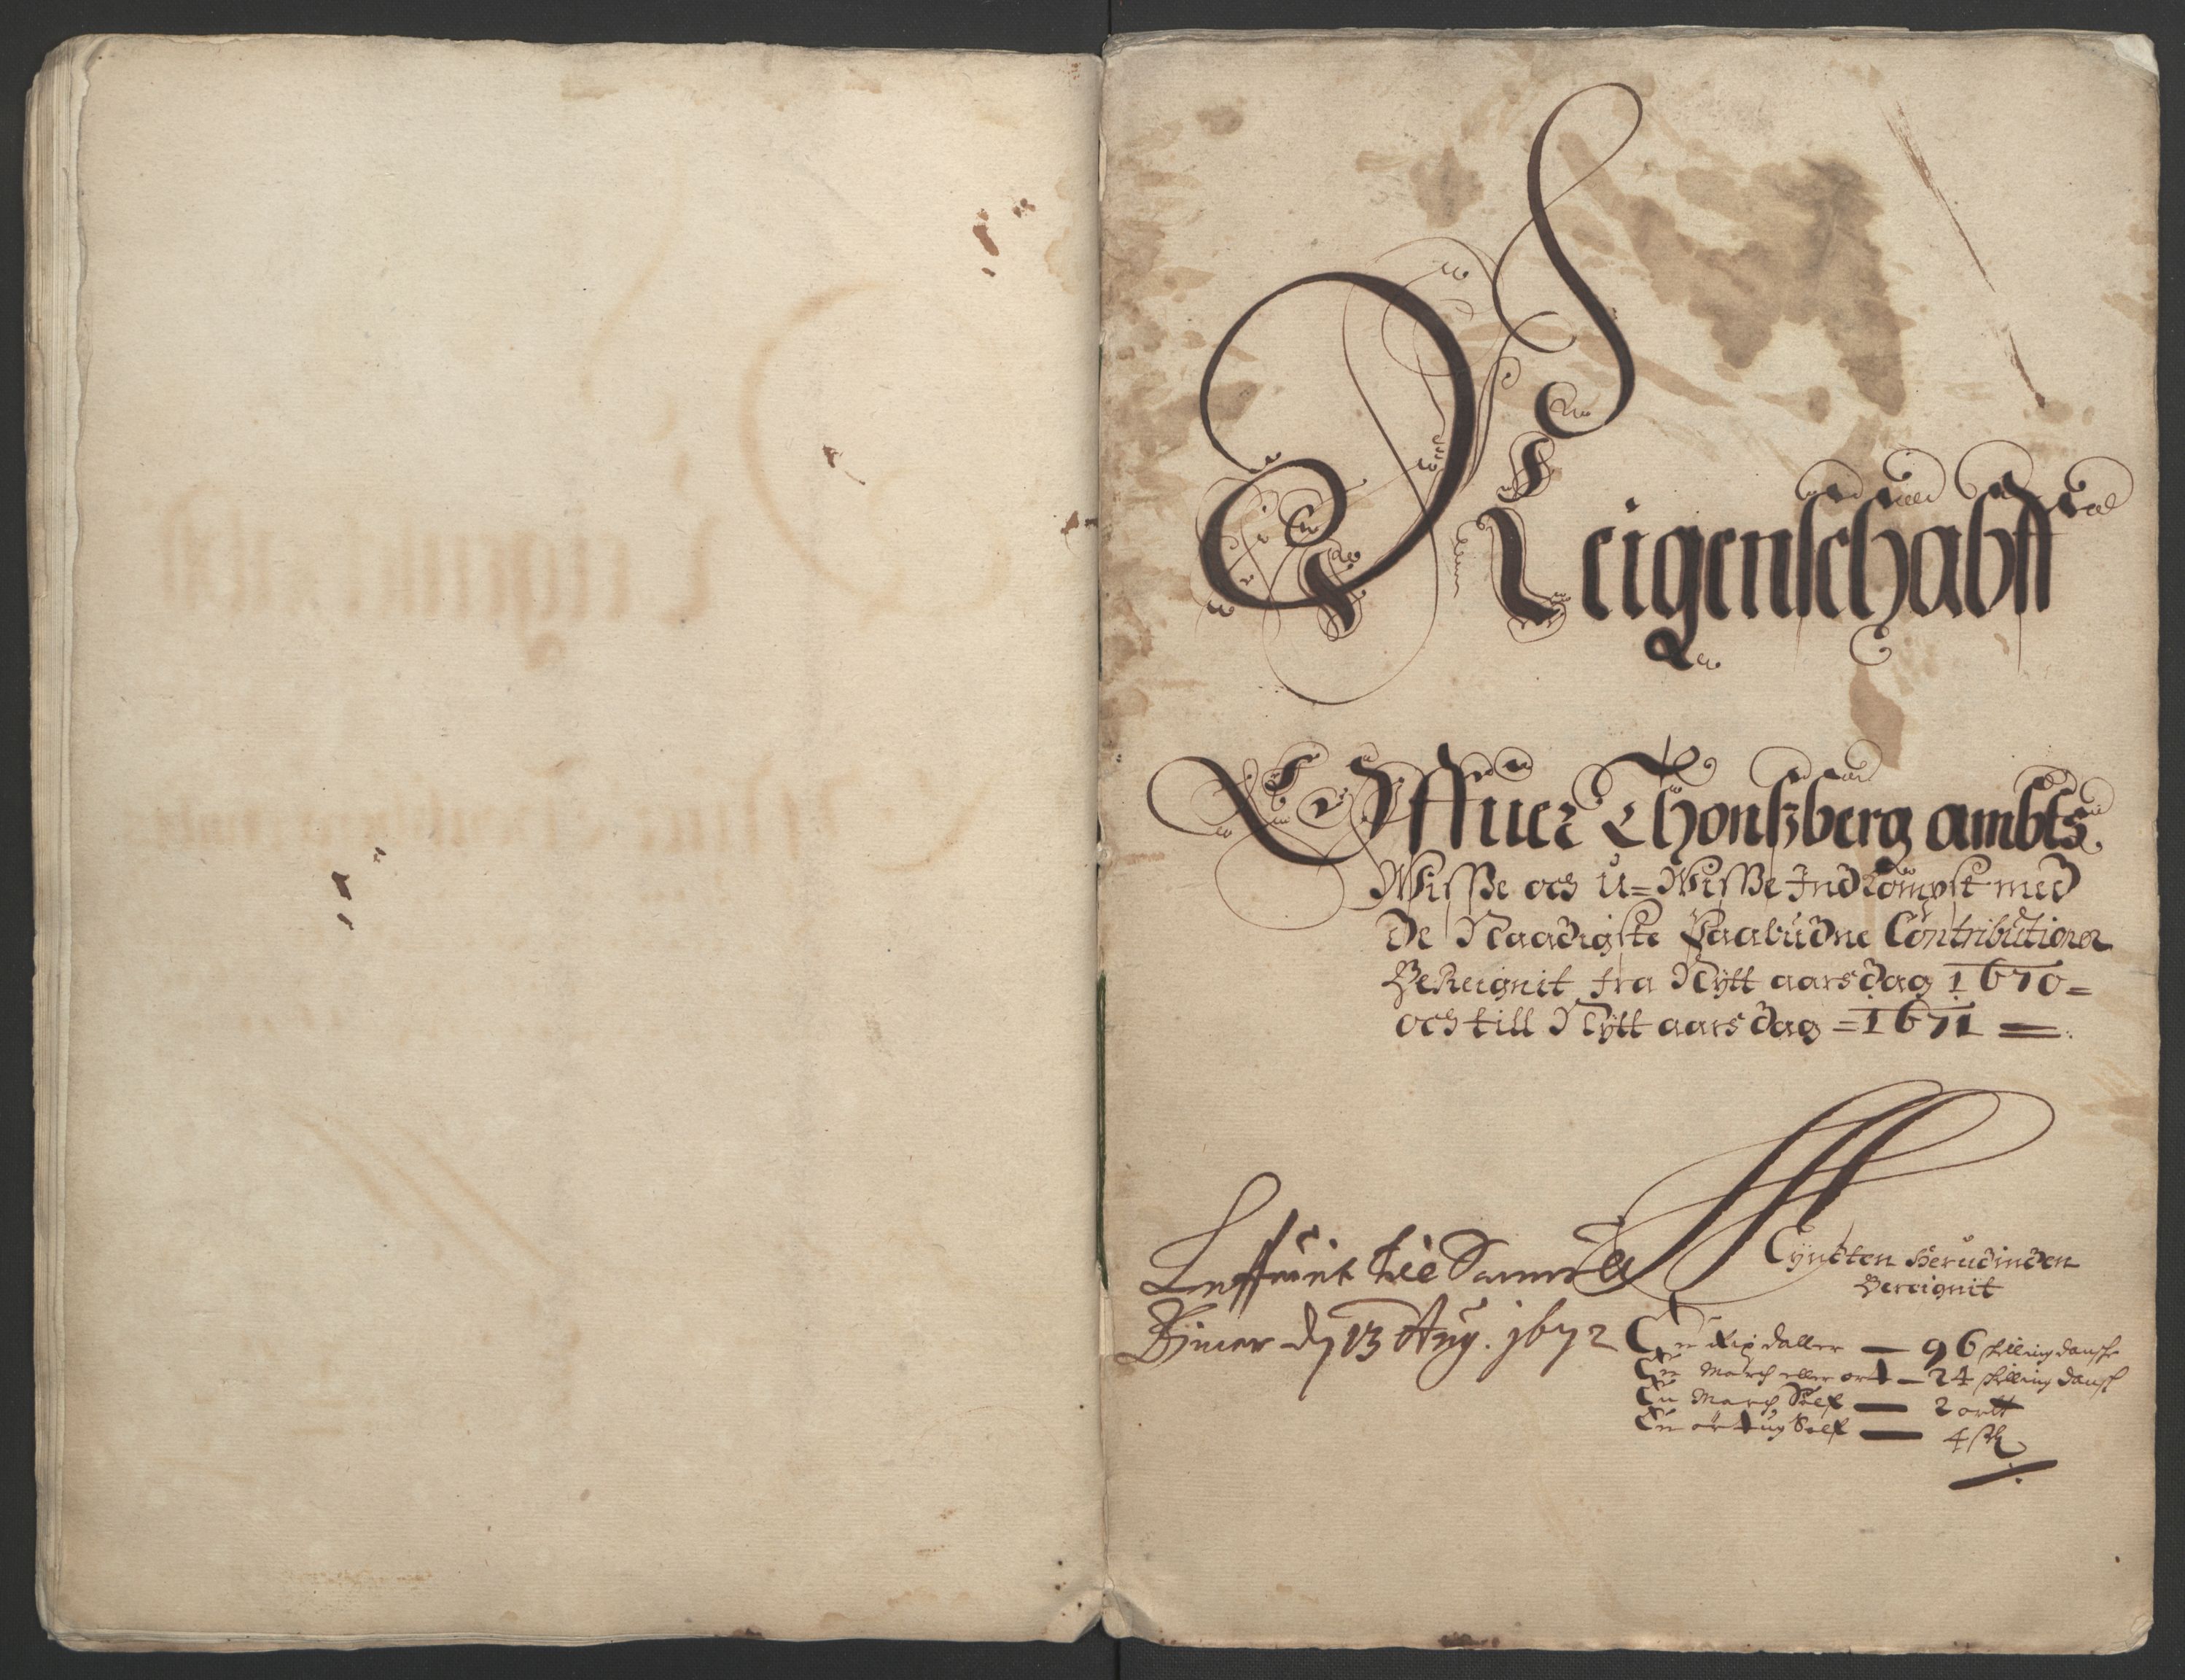 Reigenschabft
Offuer Thonßberg ambts
Wisße och U=Wisße Indkompst med
De Naadigste Paabudne Contributioner
Bereignit fra Nytt aarsdag 1670=
och till Nytt aarsdag =1671
Leffuerit
Bincer d 13 Aug. 1672
Mynten Herudinden
Bereignit
En Rix daller — 96 skilling dansk
En March eller ort — 24 skilling dansk
En March Sølf — 2 ortt
En ørtug Sølf — 4 sk